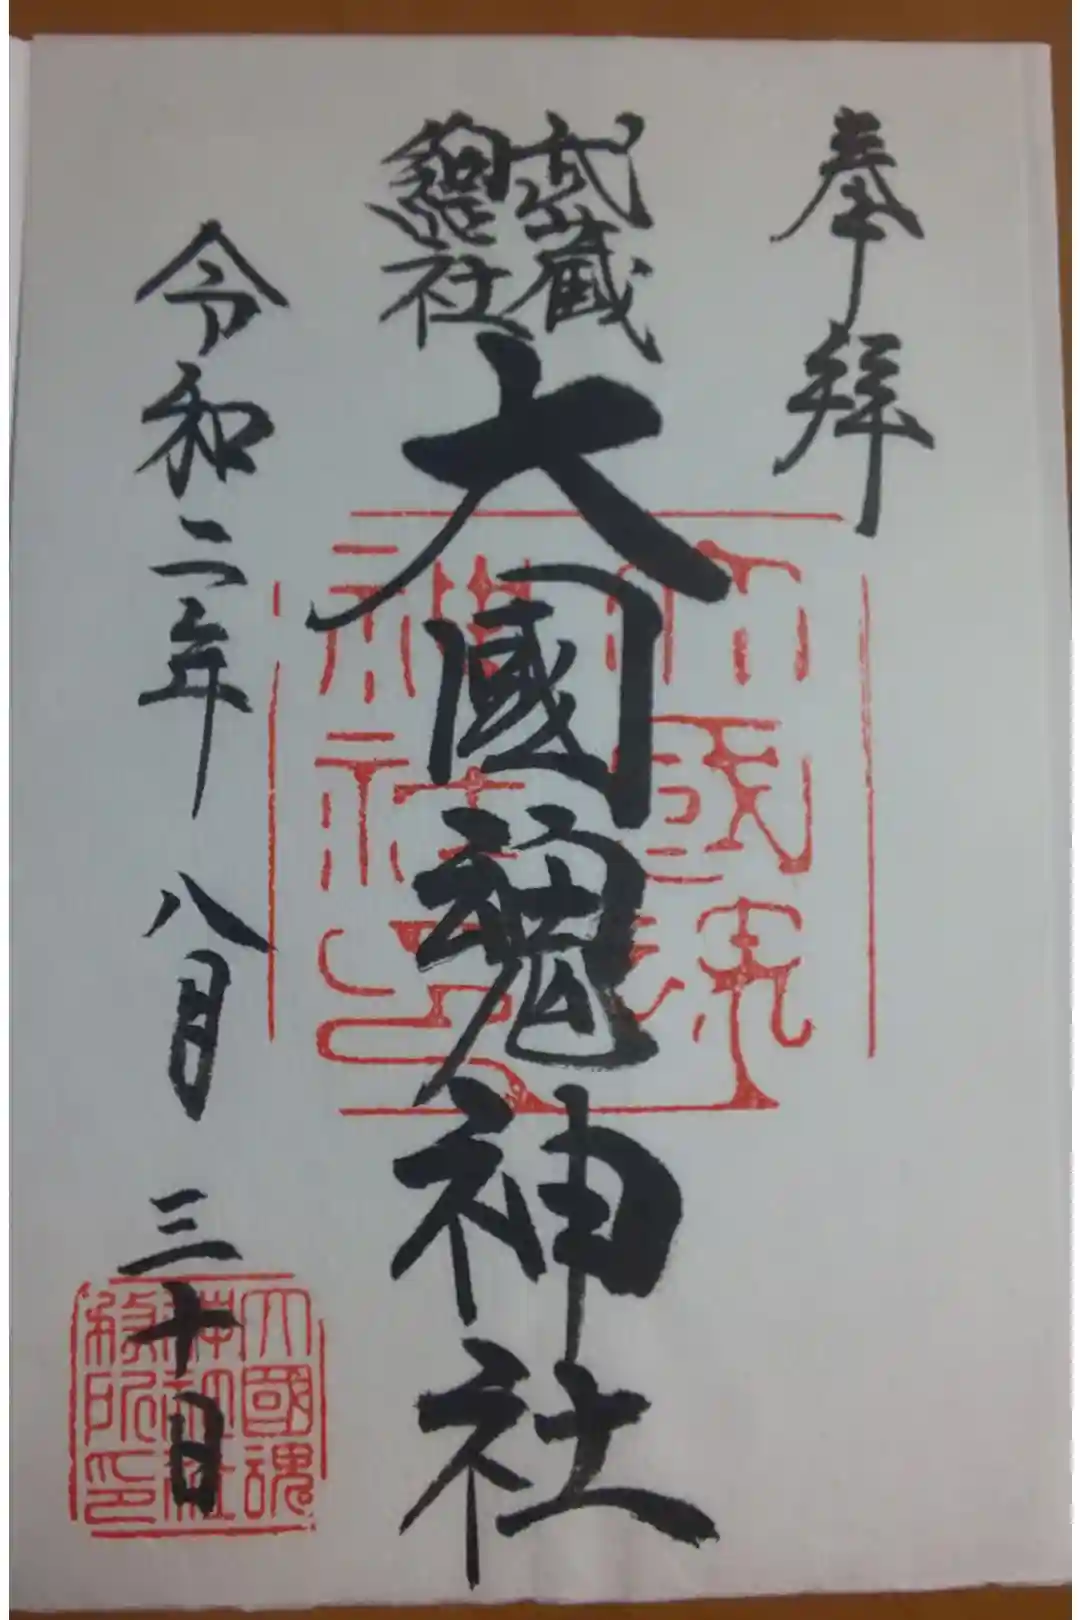 奉拝
武蔵
總社
大國魂神社
令和二年 八月 三十日
大國魂
神社
大國魂
神社社
務所印